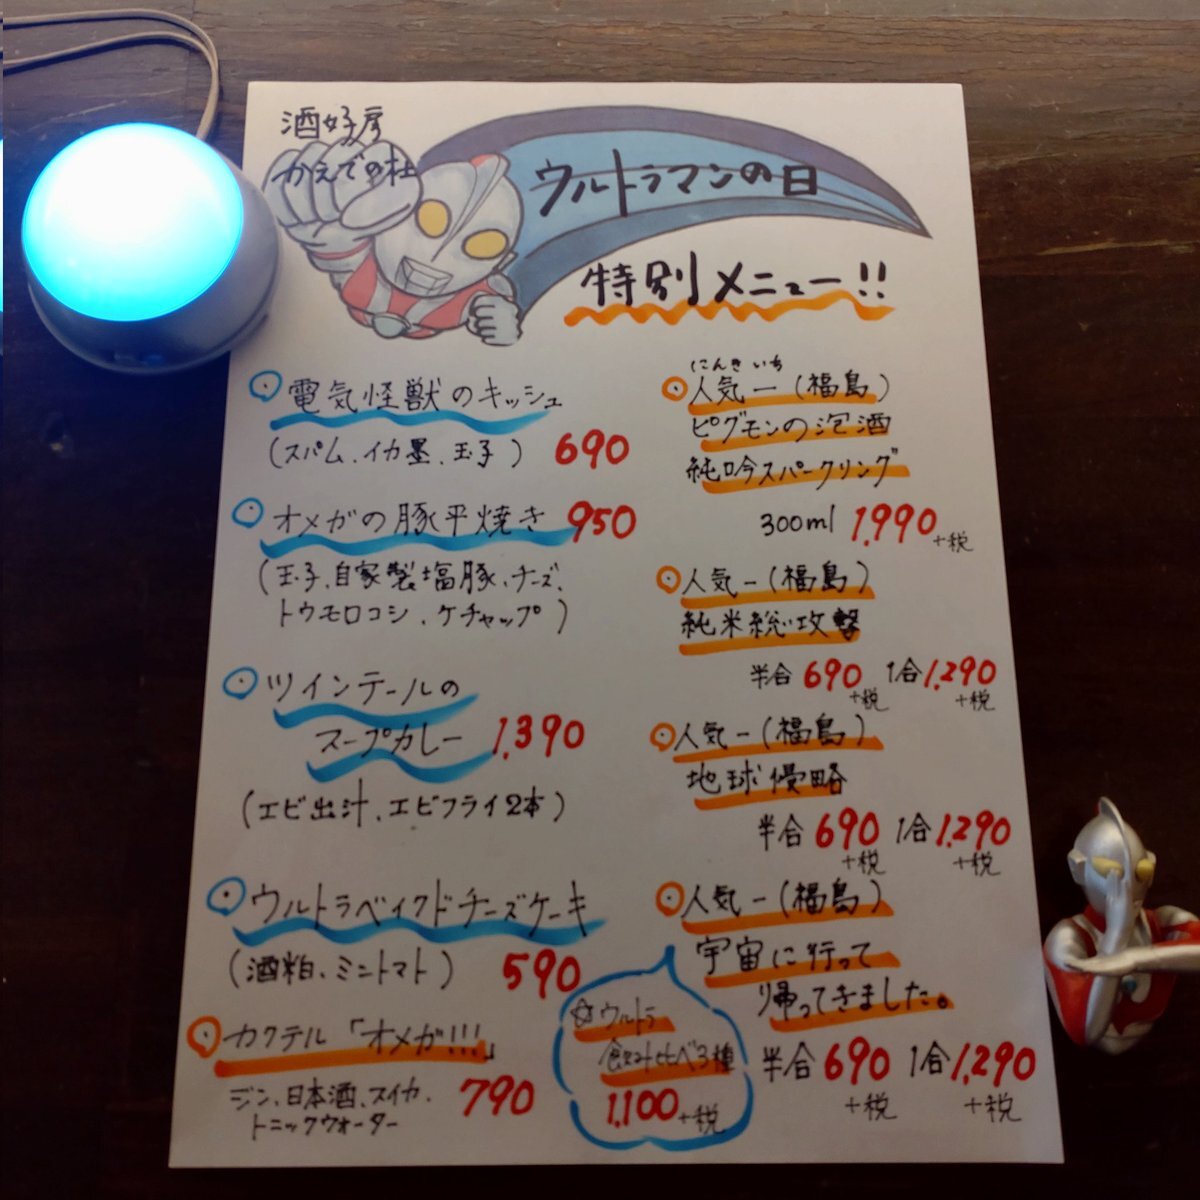 酒好房
かえでの杜
ウルトラマンの日
特別メニュー!!
電気怪獣のキッシュ
(スパム、イカ墨、玉子) 690
オメガの豚平焼き 950
(玉子、自家製塩豚、チーズ、
トウモロコシ、ケチャップ)
ツインテールの
スープカレー 1,390
(エビ出汁、エビフライ2本)
ウルトラベイクドチーズケーキ
(酒粕、ミニトマト) 590
カクテル「オメガ!!!」
ジン、日本酒、スイカ、 790
トニックウォーター
にんき いち
人気一(福島)
ピグモンの泡酒
純吟スパークリング
300ml 1,990+税
人気一(福島)
純米総攻撃
半合 690+税 1合 1,290+税
人気一(福島)
地球侵略
半合 690+税 1合 1,290+税
人気一(福島)
宇宙に行って
帰ってきました。
半合 690+税 1合 1,290+税
☆ウルトラ
飲み比べ3種
1,100+税